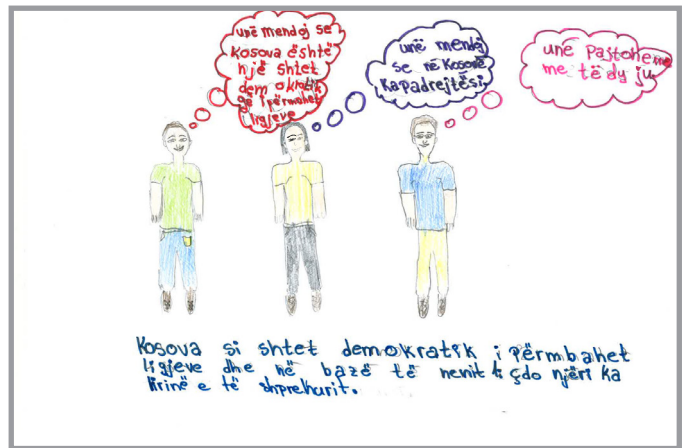 unë mendoj se
Kosova është
një shtet
demokratik
që i përmbahet
ligjeve
unë mendoj
se në Kosovë
ka padrejtësi
unë Pajtohem
me të dy ju
Kosova si shtet demokratik i përmbahet
ligjeve dhe në bazë të nenit çdo njëri ka
lirinë e të shprehurit.